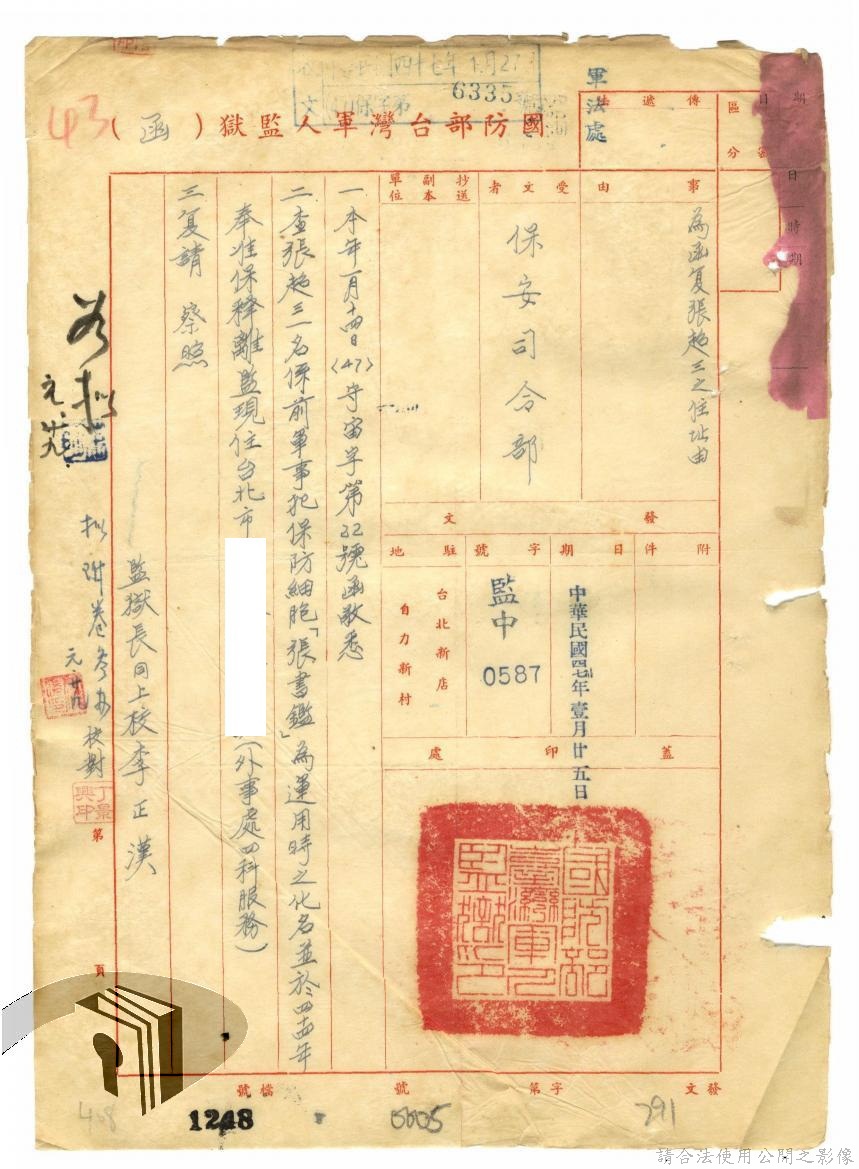 國防部台灣軍人監獄(函)
四十七年1月27
6335
43
軍法處
傳遞法
區分
日期
日時期
事由
為函复張趂三之住址由
受文者
保安司令部
抄送副本單位
發文
附件
日期
中華民國四七年壹月廿五日
字號
監中
0587
駐地
台北新店
自力新村
蓋印處
國防部臺灣軍人監獄印
一本年一月十四日(47)守宙字第22號函敬悉
二查張趂三一名係前軍事犯保防細胞「張書鑑」為運用時之化名並於四十四年
奉准保釋離監現住台北市
(外事處四科服務)
三复請 察照
監獄長同上校李正漢
擬附卷參考
元廿九
校對
丁景興印
如擬
元廿九
第
頁
發文
字第
號
檔號
291
0605
1248
408
請合法使用公開之影像